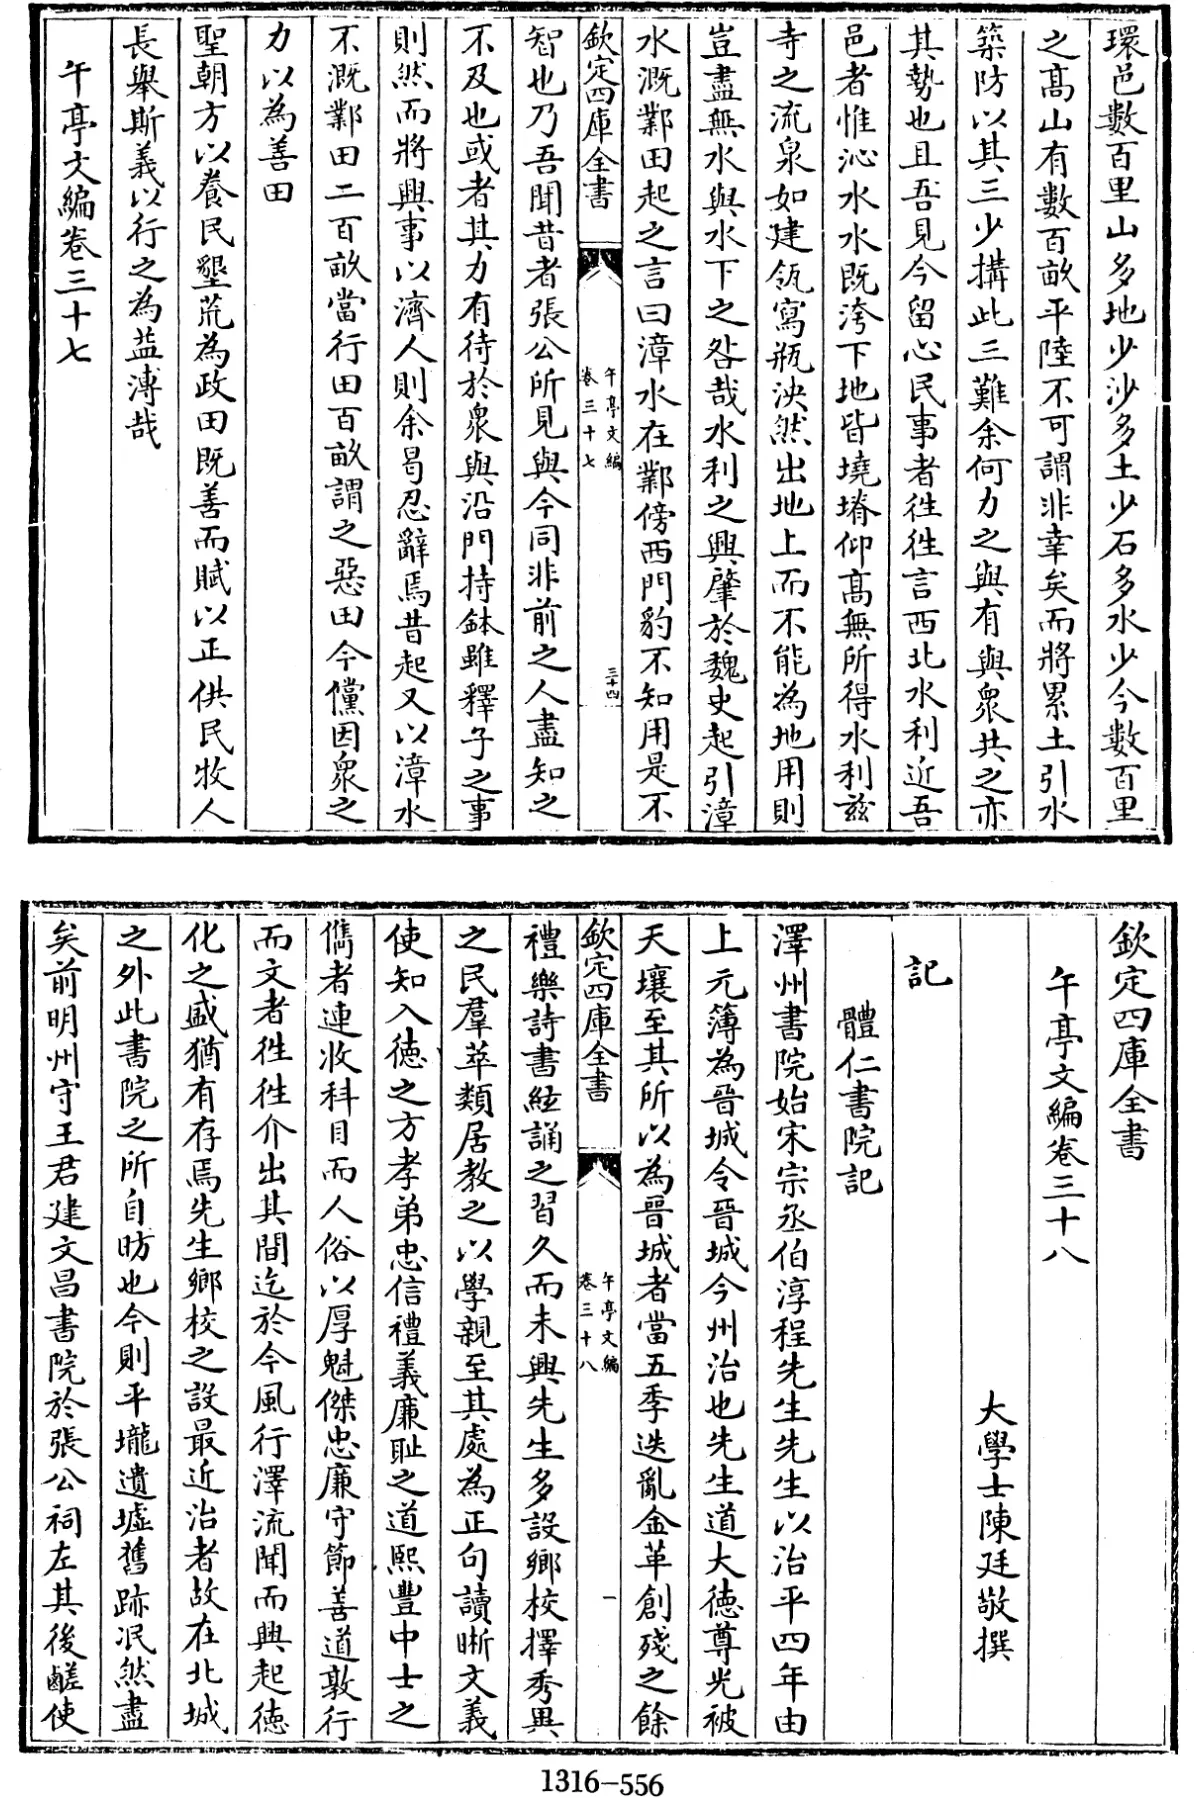 環邑數百里山多地少沙多土少石多水少今數百里
之髙山有數百畝平陸不可謂非幸矣而將累土引水
築防以其三少搆此三難余何力之與有與衆共之亦
其勢也且吾見今留心民事者徃徃言西北水利近吾
邑者惟沁水水旣洿下地皆墝塉仰髙無所得水利兹
寺之流泉如建瓴寫瓶泱然出地上而不能為地用則
豈盡無水與水下之咎哉水利之興肇於魏史起引漳
水溉鄴田起之言曰漳水在鄴傍西門豹不知用是不
欽定四庫全書
午亭文編
卷三十七
三十四
智也乃吾聞昔者張公所見與今同非前之人盡知之
不及也或者其力有待於衆與沿門持鉢雖釋子之事
則然而將興事以濟人則余曷忍辭焉昔起又以漳水
不溉鄴田二百畝當行田百畝謂之惡田今儻因衆之
力以為善田
聖朝方以養民墾荒為政田既善而賦以正供民牧人
長舉斯義以行之為益溥哉
午亭文編卷三十七
欽定四庫全書
午亭文編卷三十八
大學士陳廷敬撰
記
體仁書院記
澤州書院始宋宗丞伯淳程先生先生以治平四年由
上元簿為晉城令晉城今州治也先生道大德尊光被
天壤至其所以為晉城者當五季迭亂金革創殘之餘
欽定四庫全書
午亭文編
卷三十八
一
禮樂詩書絃誦之習久而未興先生多設鄉校擇秀異
之民羣萃類居教之以學親至其處為正句讀晣文義
使知入德之方孝弟忠信禮義廉恥之道熙豐中士之
儁者連收科目而人俗以厚魁傑忠廉守節善道敦行
而文者徃徃介出其間迄於今風行澤流聞而興起德
化之盛猶有存焉先生鄉校之設最近治者故在北城
之外此書院之所自昉也今則平壠遺墟舊跡泯然盡
矣前明州守王君建文昌書院於張公祠左其後鹺使
1316-556